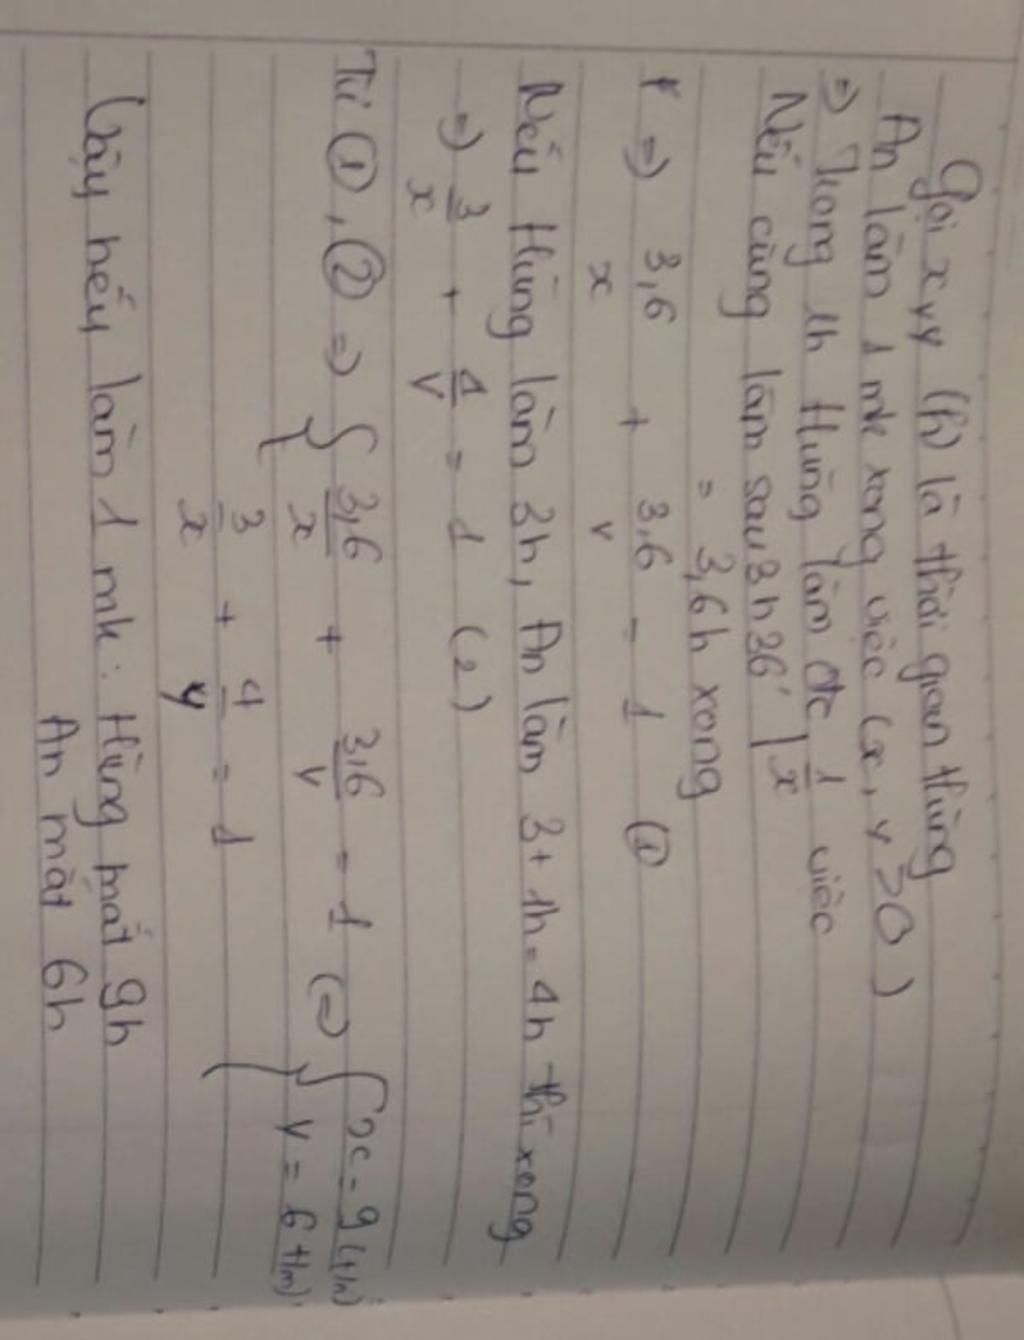 Gọi x, y (h) là thời gian Hùng
An làm 1 mk xong việc (x, y > 0)
=) Trong 1h Hùng làm đc 1/x việc
Nếu cùng làm sau 3h36'
= 3,6h xong
=) 3,6/x + 3,6/y = 1 (1)
Nếu Hùng làm 3h, An làm 3 + 1h = 4h thì xong
=) 3/x + 4/y = 1 (2)
Từ (1), (2) =) { 3,6/x + 3,6/y = 1 (=) { x = 9 (tm)
3/x + 4/y = 1 y = 6 (tm)
Vậy nếu làm 1 mk: Hùng mất 9h
An mất 6h